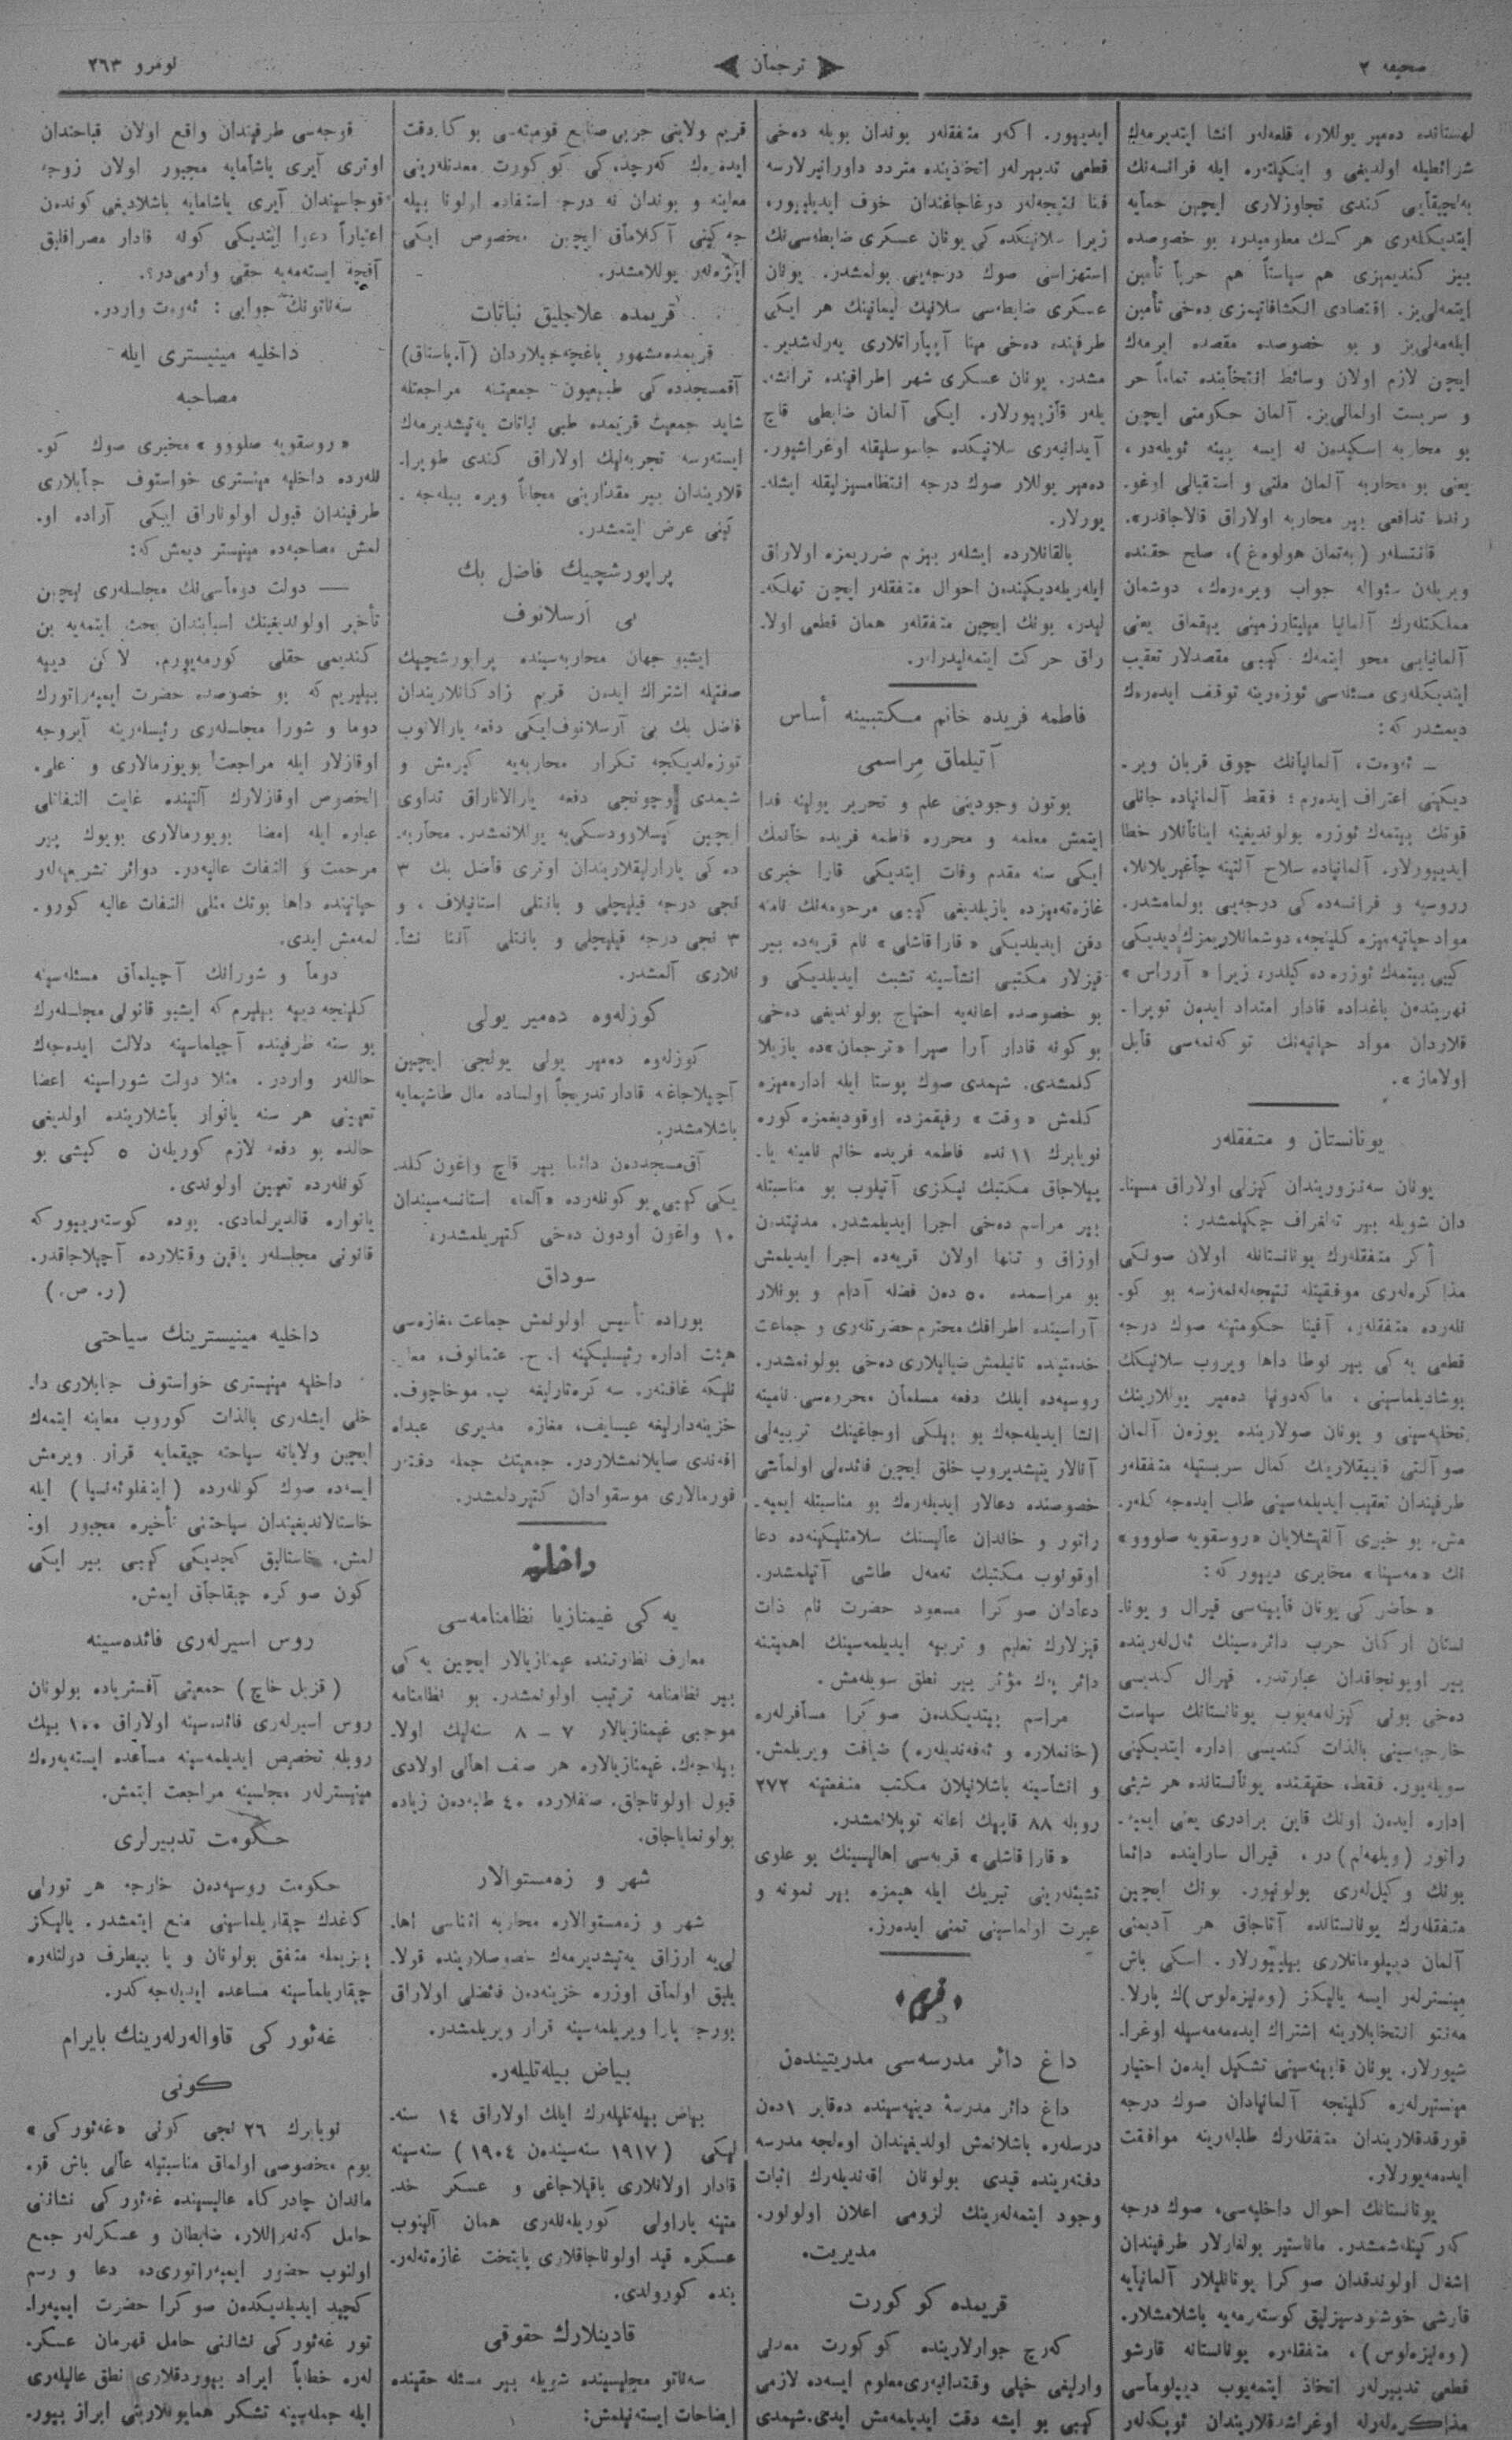 صحیفه ۲
ترجمان
نومرو ۲۶۳
لهستانده ده‌میر یوللار، قلعه‌لر انشا ایتدیرمه‌ك
شرائطیله اولدیغی و اینکیلتره ایله فرانسه‌نك
به‌لچیقایی کندی تجاوزلاری ایچین حمایه
ایتدیکلری هر کسك معلومیدر، بو خصوصده
بیز کندیمیزی هم سیاستاً هم حرباً تأمین
ایتمه‌لی‌یز. اقتصادی انکشافاتیمزی ده‌خی تأمین
ایله‌مه‌لی‌یز و بو خصوصده مقصده ایرمه‌ك
ایچن لازم اولان وسائط انتخابنده تماماً حر
و سربست اولمالی‌یز. آلمان حکومتی ایچن
بو محاربه اسکیدن نه ایسه یینه ئویله‌در،
یعنی بو محاربه آلمان ملتی و استقبالی اوغو-
رنده تدافعی بیر محاربه اولاراق قالاجاقدر».
قانتسلهر (به‌تمان هولوه‌غ)، صلح حقنده
ویریلن سئواله جواب ویره‌رك، دوشمان
مملکتلرك آلمانیا میلیتاریزمینی ییقماق یعنی
آلمانیایی محو ایتمه‌ك کیبی مقصدلار تعقیب
ایتدیکلری مسئله‌سی ئوزرینه توقف ایده‌رك
دیمشدر که:
ــ ئه‌وه‌ت، آلمانیانك چوق قربان ویر-
دیکنی اعتراف ایده‌رم؛ فقط آلمانیاده جانلی
قوتك بیتمه‌ك ئوزره بولوندیغینه اینانانلار خطا
ایدییورلار. آلمانیاده سلاح آلتینه چاغیریلانلار،
روسیه و فرانسه‌ده کی درجه‌یی بولمامشدر.
مواد حیاتیه‌میزه کلینجه، دوشمانلاریمزك دیدیکی
کیبی بیتمه‌ك ئوزره ده‌کیلدر، زیرا «آرراس»
نهرینده‌ن باغداده قادار امتداد ایده‌ن توپرا-
قلاردان مواد حیاتیه‌نك توکه‌نمه‌سی قابل
اولاماز».
یونانستان و متفقلر
یونان سه‌نزوریندان کیزلی اولاراق مسینا-
دان شویله بیر تلغراف چکیلمشدر:
أکر متفقلرك یونانستانله اولان صوڭکی
مذاکره‌لری موفقیتله نتیجه‌له‌نمه‌زسه بو کو-
نلرده متفقلر، آفینا حکومتینه صوك درجه
قطعی یه‌کی بیر نوطا داها ویروب سلانیکك
بوشادیلماسینی، ماکه‌دونیا ده‌میر یوللارینك
تخلیه‌سینی و یونان صولارینده یوزه‌ن آلمان
صو آلتی قاییقلارینك کمال سربستیله متفقلر
طرفیندان تعقیب ایدیلمه‌سینی طلب ایده‌جه کلر-
مش. بو خبری آلقیشلایان «روسقویه صلووو»
نك «مه‌سینا» مخابری دییور که:
«حاضرکی یونان قابینه‌سی قیرال و یونا-
نستان ارکان حرب دائره‌سینك ئه‌ل‌لرینده
بیر اویونجاقدان عبارتدر. قیرال کندیسی
ده‌خی بونی کیزله‌مه‌یوب یونانستانك سیاست
خارجیه‌سینی بالذات کندیسی اداره ایتدیکینی
سویله‌یور. فقط، حقیقنده یونانستانده هر شیئی
اداره ایده‌ن اونك قاین برادری یعنی ایمپه-
راتور (ویلهه‌لم)در، قیرال ساراینده دائما
بونك وکیل‌لری بولونیور. بونك ایچین
متفقلرك یونانستانده آتاجاق هر آدیمنی
آلمان دیپلوماتلاری بیلییورلار. اسکی باش
مینستر‌لر ایسه یالیکز (وه‌نیزه‌لوس)ك پارلا-
مه‌نتو انتخابلارینه اشتراك ایده‌مه‌مه‌سیله اوغرا-
شیورلار. یونان قابینه‌سینی تشکیل ایده‌ن اختیار
مینستیرلره کلینجه آلمانیادان صوك درجه
قورقدقلاریندان متفقلرك طلبلرینه موافقت
ایده‌مه‌یورلار.
یونانستانك احوال داخلیه‌سی، صوك درجه
که‌رکینله‌شمشدر. ماناستیر بولغارلار طرفیندان
اشغال اولوندقدان صوکرا یونانلیلار آلمانیایه
قارشی خوشنودسیزلیق کوسته‌رمه‌یه باشلامشلار.
(وه‌نیزه‌لوس)، متفقلره یونانستانه قارشو
قطعی تدبیرلر اتخاذ ایتمه‌یوب دیپلوماسی
مذاکره‌لرله اوغراشدقلاریندان ئوپکه‌لر
ایدییور. اکر متفقلر بوندان بویله ده‌خی
قطعی تدبیرلر اتخاذینده متردد داورانیرلارسه
فنا نتیجه‌لر دوغاجاغندان خوف ایدیلییور،
زیرا سلانیکده کی یونان عسکری ضابطه‌سی‌نك
استهزاسی صوك درجه‌یی بولمشدر. یونان
عسکری ضابطه‌سی سلانیك لیمانینك هر ایکی
طرفینده ده‌خی مینا آپپاراتلاری یه‌رله‌شدیر-
مشدر. یونان عسکری شهر اطرافینده ترانشه-
یلر قازییورلار. ایکی آلمان ضابطی قاچ
آیدانبه‌ری سلانیکده جاسوسلیقله اوغراشیور.
ده‌میر یوللار صوك درجه انتظامسیزلیقله ایشله-
یورلار.
بالقانلارده ایشلر بیزم ضرریمزه اولاراق
ایله‌ریله‌دیکینده‌ن احوال متفقلر ایچن تهلکه-
لیدر، بونك ایچین متفقلر همان قطعی اولا-
راق حرکت ایتمه‌لیدرلر.
فاطمه فریده خانم مکتبینه أساس
آتیلماق مراسمی
بوتون وجودینی علم و تحریر یولینه فدا
ایتمش معلمه و محرره فاطمه فریده خانمك
ایکی سنه مقدم وفات ایتدیکی قارا خبری
غازه‌ته‌میزده یازیلدیغی کیبی مرحومه‌نك نامنه
دفن ایدیلدیکی «قارا قاشلی» نام قریه‌ده بیر
قیزلار مکتبی انشأسینه تشبث ایدیلدیکی و
بو خصوصده اعانه‌یه احتیاج بولوندیغی ده‌خی
بو کونه قادار آرا صیرا «ترجمان»ده یازیلا
کلمشدی. شیمدی صوك پوستا ایله اداره‌میزه
کلمش «وقت» رفیقمزده اوقودیغمزه کوره
نویابرك ۱۱ نده فاطمه فریده خانم نامینه یا-
پیلاجاق مکتبك نیکزی آتیلوب بو مناسبتله
بیر مراسم ده‌خی اجرا ایدیلمشدر. مدنیتدن
اوزاق و تنها اولان قریه‌ده اجرا ایدیلمش
بو مراسمده ۵۰ ده‌ن فضله آدام و بونلار
آراسینده اطرافك محترم حضرتلری و جماعت
خدمتیده تانیلمش ضیالیلاری ده‌خی بولونمشدر.
روسیه‌ده ایلك دفعه مسلمان محرره‌سی نامینه
انشا ایدیله‌جه‌ك بو بیلکی اوجاغینك تربیه‌لی
آنالار یتیشدیروب خلق ایچین فائده‌لی اولماشی
خصوصنده دعالار ایدیلرك بو مناسبتله ایمپه-
راتور و خاندان عالیسنك سلامتلیکینه‌ده دعا
اوقونوب مکتبك ته‌مه‌ل طاشی آتیلمشدر.
دعادان صوکرا مسعود حضرت نام ذات
قیزلارك تعلیم و تربیه ایدیلمه‌سینك اهمیتنه
دائر پك مؤثر بیر نطق سویله‌مش.
مراسم بیتدیکدن صوکرا مسافرلره
(خانملاره و ئه‌فه‌ندیلره) ضیافت ویریلمش.
و انشأسینه باشلانیلان مکتب منفعتینه ۲۷۲
روبله ۸۸ قاپیك اعانه توپلانمشدر.
«قارا قاشلی» قریه‌سی اهالیسینك بو علوی
تشبثلرینی تبریك ایله هیمزه بیر نمونه و
عبرت اولماسینی تمنی ایده‌رز.
قریم
داغ دائر مدرسه‌سی مدریتینده‌ن
داغ دائر مدرسۀ دینیه‌سینده ده‌قابر ۱ ده‌ن
درسلره باشلانمش اولدیغیندان اوه‌لجه مدرسه
دفترینده قیدی بولونان افندیلرك اثبات
وجود ایتمه‌لرینك لزومی اعلان اولونور.
مدیریت.
قریمده کوکورت
که‌رچ جوارلارینده کوکورت معدنی
وارلیغی خیلی وقتدانبه‌ری معلوم ایسه‌ده لازمی
کیبی بو ایشه دقت ایدیلمه‌مش ایدی. شیمدی
قریم ولایتی حربی صنایع قومیته‌سی بوکا دقت
ایده‌رك که‌رچده کی کوکورت معدنلرینی
معاینه و بوندان نه درجه استفاده اولونا بیله
جه‌کینی آکلاماق ایچین مخصوص ایکی
اینژه‌نه‌ر یوللامشدر.
قریمده علاجلیق نباتات
قریمده مشهور باغچه‌جیلاردان (آ. پاستاق)
آقمسجدده کی طبیعیون جمعیتنه مراجعتله
شاید جمعیت قریمده طبی نباتات یه‌تیشدیرمه‌ك
ایسته‌رسه تجربه‌لیك اولاراق کندی طوپرا-
قلاریندان بیر مقدارینی مجاناً ویره بیله‌جه-
کینی عرض ایتمشدر.
پراپورشچیك فاضل بك
بی آرسلانوف
ایشبو جهان محاربه‌سینده پراپورشچیك
صفتیله اشتراك ایده‌ن قریم زادکانلاریندان
فاضل بك بی آرسلانوف ایکی دفعه یارالانوب
توزه‌لدیکجه تکرار محاربه‌یه کیرمش و
شیمدی اوچونجی دفعه یارالاناراق تداوی
ایچین کیسلاوودسکی‌یه یوللانمشدر. محاربه-
ده کی یارارلیقلاریندان اوتری فاضل بك ۳
نجی درجه قیلیچلی و بانتلی استانیلاف، و
۳ نجی درجه قیلیچلی و بانتلی آننا نشا-
نلاری آلمشدر.
کوزله‌وه ده‌میر یولی
کوزله‌وه ده‌میر یولی یولجی ایچیین
آچیلاجاغنه قادار تدریجاً اولساده مال طاشیمایه
باشلامشدر.
آق‌مسجددن دائما بیر قاچ واغون کلد-
یکی کیبی بو کونلرده «آلما» استانسه‌سیندان
۱۰ واغون اودون ده‌خی کتیریلمشدر.
سوداق
بوراده تأسیس اولونمش جماعت مغازه‌سی
هیئت اداره رئیسلیکینه ا. ح. عثمانوف، معا-
نلیکه غافنه‌ر، سه‌کره‌تارلیغه پ. موخاچوف،
خزینه‌دارلیغه عبسایف، مغازه مدیری عبدالله
افندی صایلانمشلاردر. جمعیتك جمله دفتر
فورمالاری موسقوادان کتیردلمشدر.
داخلیه
یه‌کی غیمنازیا نظامنامه‌سی
معارف نظارتنده غیمنازیالار ایچین یه‌کی
بیر نظامنامه ترتیب اولونمشدر. بو نظامنامه
موجبی غیمنازیالار ۷ – ۸ سنه‌لیك اولا-
بیله‌جه‌ك. غیمنازیالاره هر صف اهالی اولادی
قبول اولوناجاق. صنفلارده ۴۰ طلبه‌دن زیاده
بولونمایاجاق.
شهر و زه‌مستوالار
شهر و زه‌مستوالاره محاربه اثناسی اها-
لی‌یه ارزاق یه‌تیشدیرمه‌ك خصوصلارینده قولا-
یلیق اولماق اوزره خزینه‌دن فائضلی اولاراق
بورجه پارا ویریلمه‌سینه قرار ویریلمشدر.
بیاض بیله‌تلیلر.
بیاض بیله‌تلیلرك ایلك اولاراق ۱۴ سنه-
لیکی (۱۹۱۷ سنه‌سیندن ۱۹۰۴) سنه‌سینه
قادار اولانلاری باقیلاجاغی و عسکر خد-
متینه یاراولی کوریله‌نلری همان آلینوب
عسکره قید اولوناجاقلاری پایتخت غازه‌ته‌لر-
ینده کورولدی.
قادینلارك حقوقی
سه‌ناتو مجلیسینده شویله بیر مسئله حقینده
ایضاحات ایسته‌نیلمش:
قوجه‌سی طرفیندان واقع اولان قباحتدان
اوتری آیری یاشامایه مجبور اولان زوجه
قوجاسیندان آیری یاشامایه باشلادیغی کوندن
اعتباراً دعوا ایتدیکی کونه قادار مصرافلیق
آقچه ایسته‌مه‌یه حقی وارمی‌در؟.
سه‌ناتونك جوابی: ئه‌وه‌ت واردر.
داخلیه مینیستری ایله
مصاحبه
«روسقویه صلووو» مخبری صوك کو-
نلرده داخلیه مینستری خواستوف جنابلاری
طرفیندان قبول اولوناراق ایکی آراده او-
لمش مصاحبه‌ده مینیستر دیمش که:
— دولت دوماسی‌نك مجلسلری ایچین
تأخیر اولوندیغینك اسبابندان بحث ایتمه‌یه بن
کندیمی حقلی کورمه‌یورم. لاکن دییه
بیلیریم که بو خصوصده حضرت ایمپه‌راتورك
دوما و شورا مجلسلری رئیسلرینه آیروجه
اوقازلار ایله مراجعت بویورمالاری و علی-
الخصوص اوقازلارك آلتینده غایت التفاتلی
عباره ایله إمضا بویورمالاری بویوك بیر
مرحمت و التفات عالیه‌در. دوائر تشریعیه‌لر
حیاتینده داها بونك مثلی التفات عالیه کورو-
لمه‌مش ایدی.
دوما و شورانك آچیلماق مسئله‌سینه
کلینجه دییه بیلیرم که ایشبو قانونی مجلسلرك
بو سنه ظرفینده آچیلماسینه دلالت ایده‌جه‌ك
حاللر واردر. مثلا دولت شوراسینه اعضا
تعیینی هر سنه یانوار باشلارینده اولدیغی
حالده بو دفعه لازم کوریلن ۵ کیشی بو
کونلرده تعیین اولوندی.
یانواره قالدیرلمادی. بوده کوسته‌رییور که
قانونی مجلسلر یاقین وقتلارده آچیلاجاقدر.
(ر. ص.)
داخلیه مینیسترینك سیاحتی
داخلیه مینیستری خواستوف جنابلاری دا-
خلی ایشلری بالذات کوروب معاینه ایتمه‌ك
ایچین ولایاته سیاحته چیقمایه قرار ویرمش
ایسه‌ده صوك کونلرده (اینفلوئه‌نسیا) ایله
خاستالاندیغیندان سیاحتنی تأخیره مجبور او-
لمش. خاستالیق کچدیکی کیبی بیر ایکی
کون صوکره چیقاجاق ایمش.
روس اسیرلری فائده‌سینه
(قزیل خاچ) جمعیتی آفستریاده بولونان
روس اسیرلری فائده‌سینه اولاراق ۱۰۰ بیك
روبله تخصیص ایدیلمه‌سینه مساعده ایسته‌یه‌رك
مینیسترلر مجلسینه مراجعت ایتمش.
حکومت تدبیرلری
حکومت روسیه‌دن خارجه هر تورلی
کاغدك چیقاریلماسینی منع ایتمشدر. یالیکز
بزیمله متفق بولونان و یا بیطرف دولتلره
چیقاریلماسینه مساعده ایدیله‌جه‌کدر.
غه‌ئورکی قاوالهرلرینك بایرام
کونی
نویابرك ۲۶ نجی کونی «غه‌ئورکی»
یوم مخصوصی اولماق مناسبتیله عالی باش قو-
ماندان چادرکاه عالیسینده غه‌ئورکی نشاننی
حامل که‌نه‌راللار، ضابطان و عسکرلر جمع
اولنوب حضور ایمپه‌راتوری‌ده دعا و رسم
کچید ایدیلدیکدن صوکرا حضرت ایمپه‌را-
تور غه‌ئورکی نشاننی حامل قهرمان عسکر-
لره خطاباً ایراد بیوردقلاری نطق عالیلری
ایله جمله‌سینه تشکر همایونلارینی ابراز بیور-